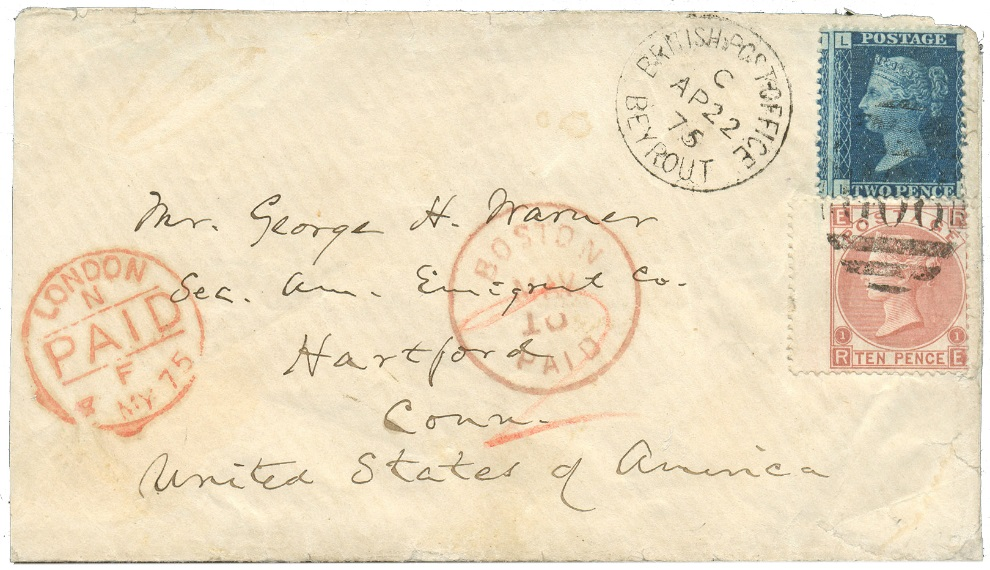 BRITISH POST OFFICE
C
AP 22
75
BEYROUT
L
POSTAGE
TWO PENCE
L
E R
POSTAGE
1 1
R TEN PENCE E
Mr. George H. Warner
Sec. Am. Emigrant Co.
Hartford
Conn.
United States of America
LONDON
N
PAID
F
MY 75
BOSTON
MAY
10
PAID